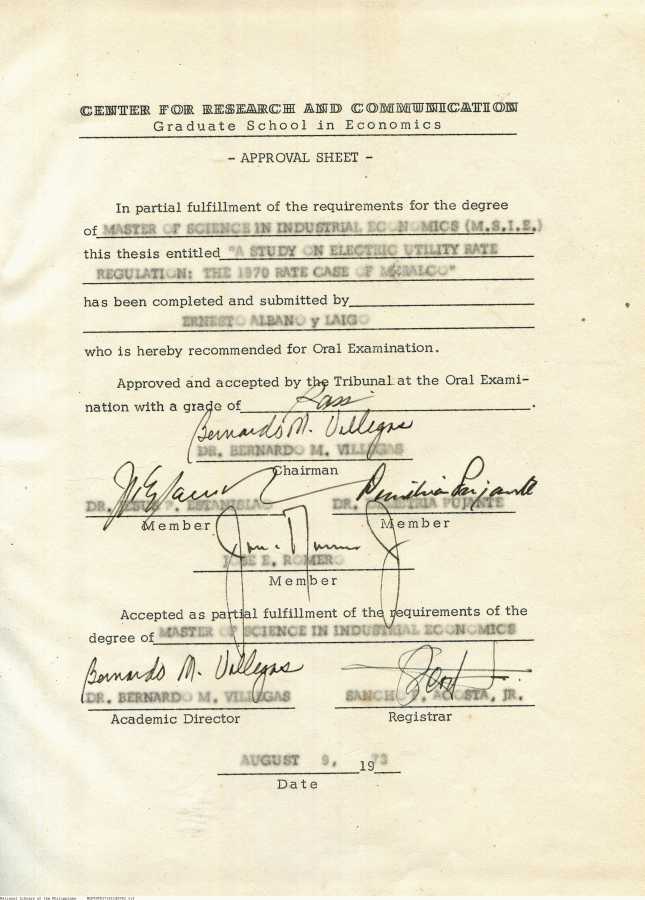 CENTER FOR RESEARCH AND COMMUNICATION
Graduate School in Economics
- APPROVAL SHEET -
In partial fulfillment of the requirements for the degree
of MASTER OF SCIENCE IN INDUSTRIAL ECONOMICS (M.S.I.E.)
this thesis entitled "A STUDY ON ELECTRIC UTILITY RATE
REGULATION: THE 1970 RATE CASE OF MERALCO"
has been completed and submitted by
ERNESTO ALBANO y LAIGO
who is hereby recommended for Oral Examination.
Approved and accepted by the Tribunal at the Oral Exami-
nation with a grade of Pass.
Bernardo M. Villegas
DR. BERNARDO M. VILLEGAS
Chairman
DR. JESUS P. ESTANISLAO
Member
DR. DEMETRIA PUJANTE
Member
JOSE E. ROMERO
Member
Accepted as partial fulfillment of the requirements of the
degree of MASTER OF SCIENCE IN INDUSTRIAL ECONOMICS
Bernardo M. Villegas
DR. BERNARDO M. VILLEGAS
Academic Director
SANCHO P. ACOSTA, JR.
Registrar
AUGUST 9, 1973
Date
National Library of the Philippines